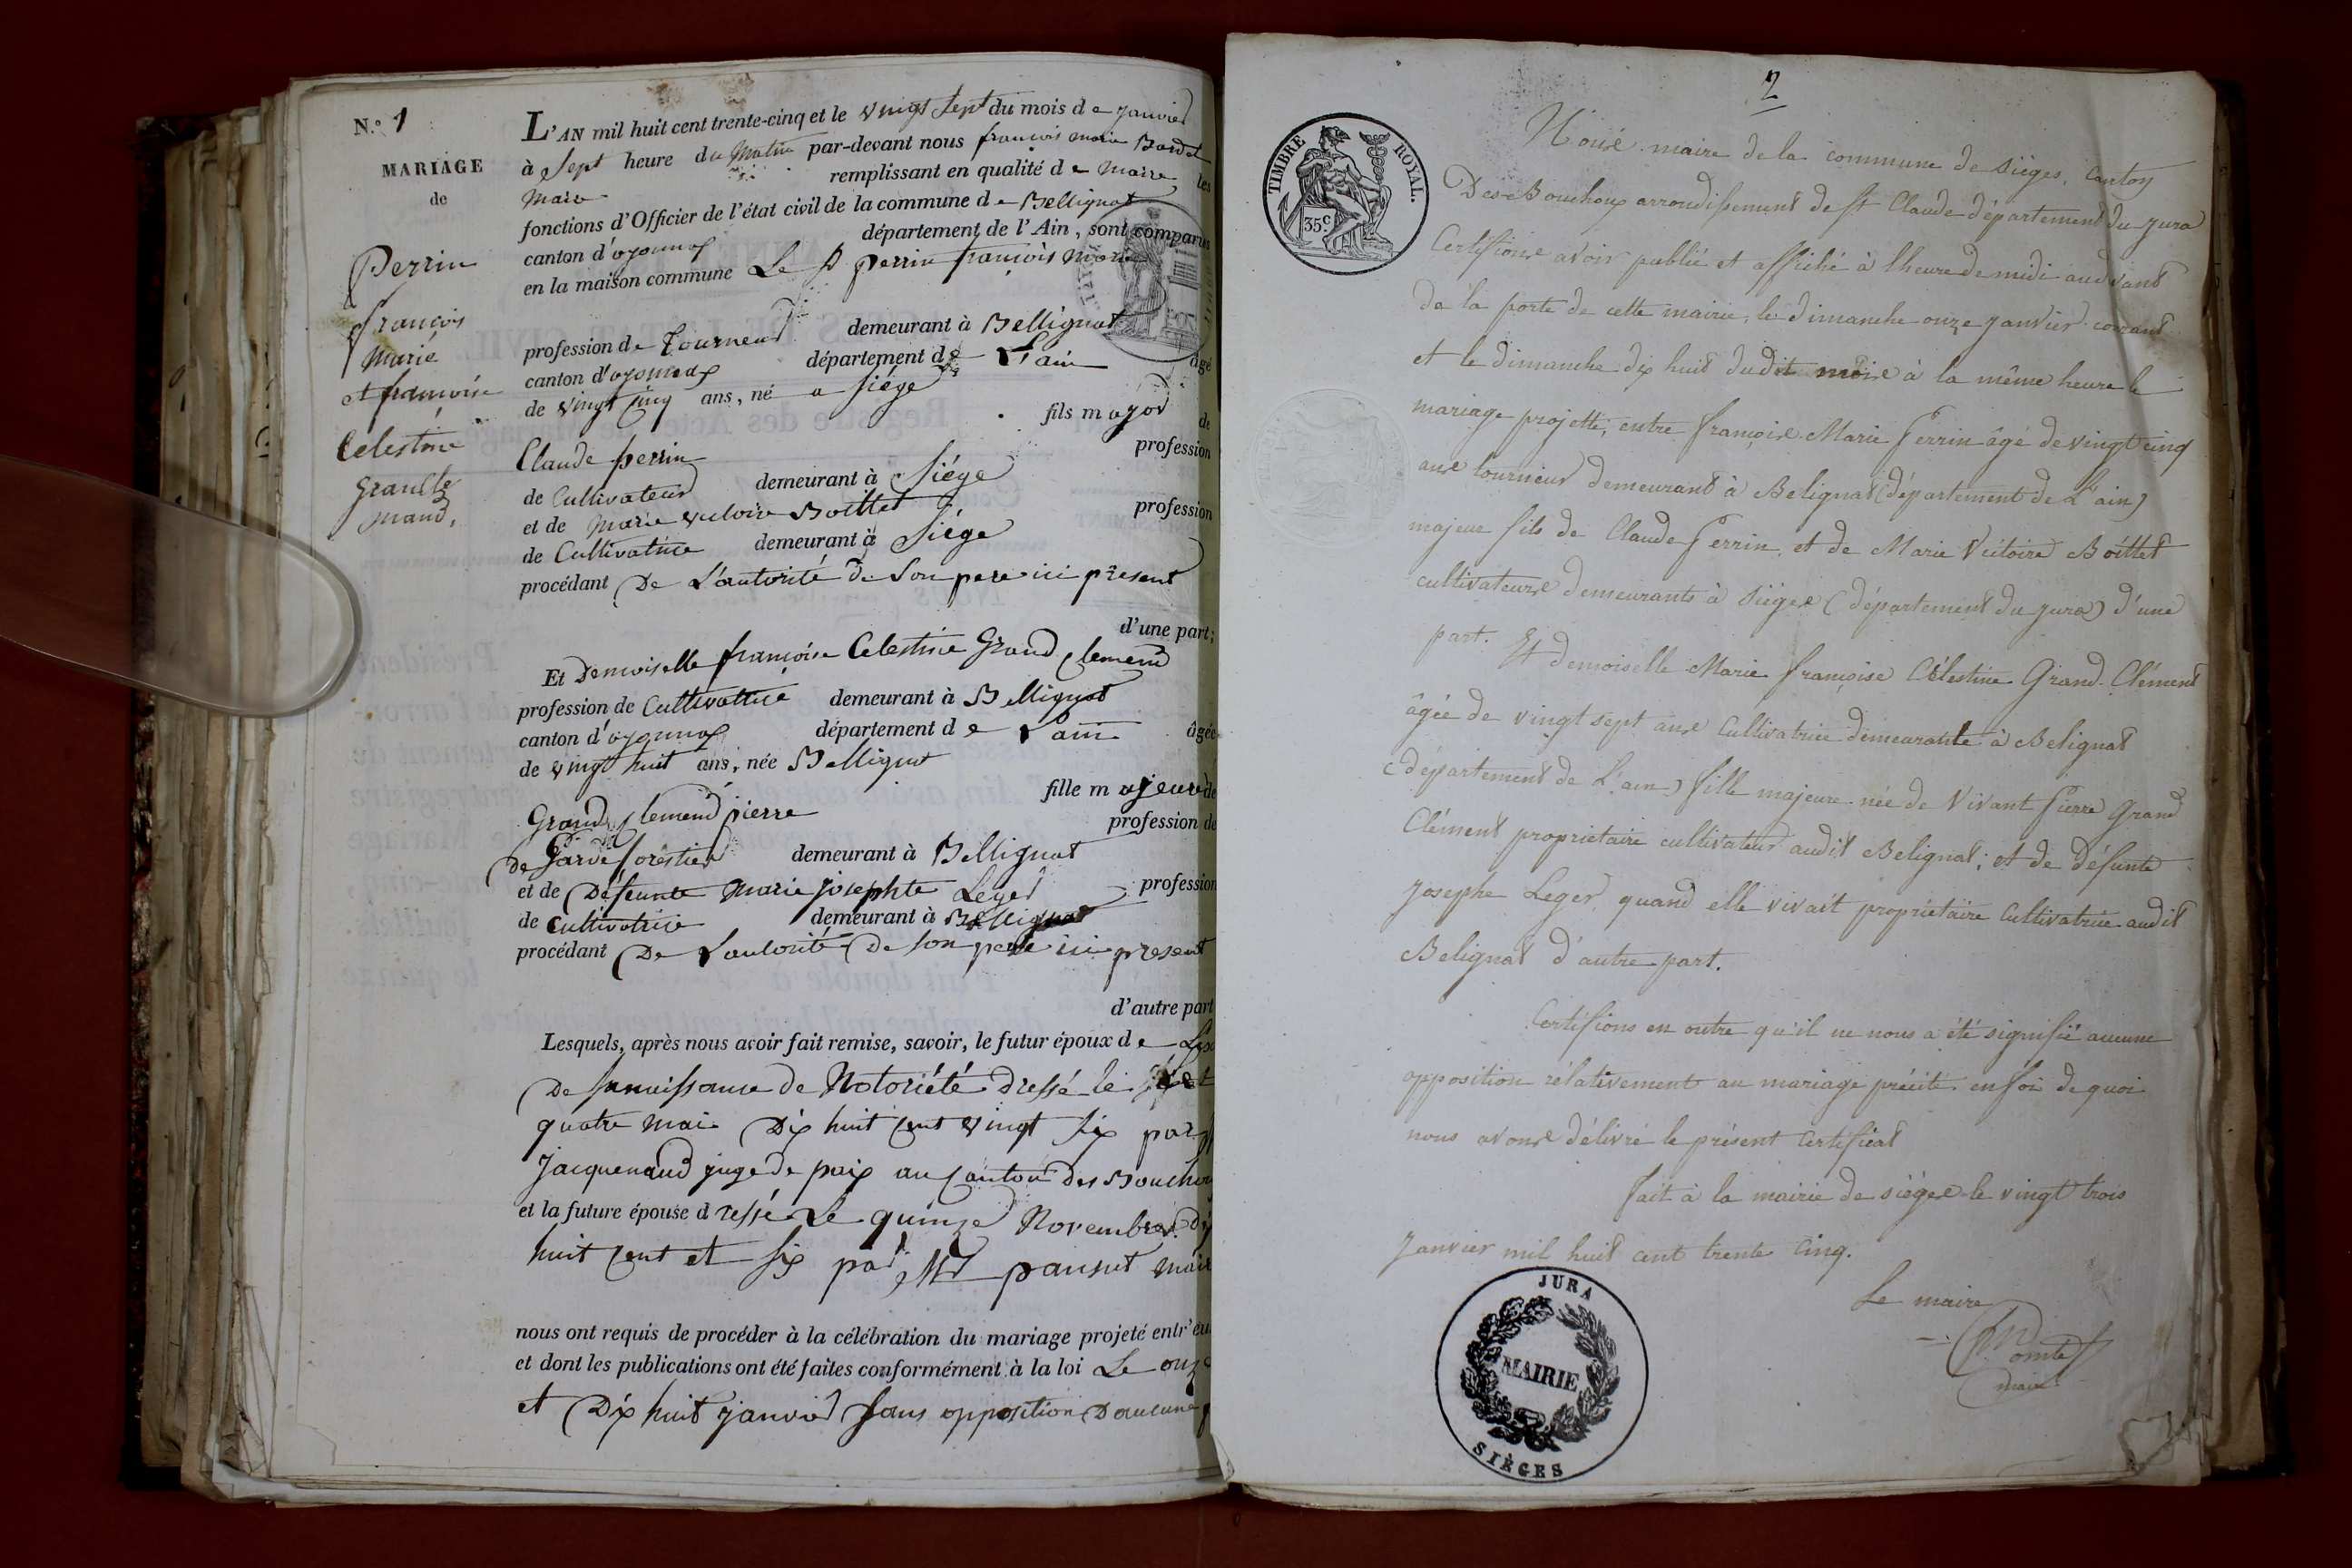 N.o 1
MARIAGE
de
Perrin
françois
Marie
et françoise
Celestine
Grand Cle
mand,
L'AN mil huit cent trente-cinq et le vingt sept du mois de janvier
à sept heure du Matin par-devant nous françois marie
Maire remplissant en qualité de Maire les
fonctions d'Officier de l'état civil de la commune de Bellignat
canton d'oyonnax département de l'Ain, sont comparus
en la maison commune Le Sr perrin françois Marie
profession de Tourneur demeurant à Bellignat
canton d'oyonnax département de L'ain âgé
de vingt cinq ans, né a siége
fils major de
Claude perrin profession
de Cultivateur demeurant à Siége
et de Marie victoire Boillet profession
de Cultivatrice demeurant à Siége
procédant De L'autorité de Son pere ici présent
d'une part;
Et Demoiselle françoise Celestine Grand Clemend
profession de Cultivatrice demeurant à Bellignat
canton d'oyonnax département de L'ain âgée
de vingt huit ans, née Bellignat
fille majeure de
Grand Clemend pierre profession de
De Garde forestier demeurant à Bellignat
et de Defeunte Marie josephte Leger profession
de Cultivatrice demeurant à Bellignat
procédant De L'autorité De Son pere ici present
d'autre part
Lesquels, après nous avoir fait remise, savoir, le futur époux de
De Sa naissance de Notoriété dressé le
quatre Mai Dix huit cent vingt six par
Jacquenaud juge de paix au Canton des Bouchoux
et la future épouse dressé Le quinze Novembre dix
huit cent et six par Mr pansut maire
nous ont requis de procéder à la célébration du mariage projeté entr'eux
et dont les publications ont été faites conformément à la loi Le onze
et Dix huit janvier Sans opposition D'aucune
2
TIMBRE ROYAL.
35c.
Nous maire de la commune de sièges, canton
Des Bouchoux arrondissement de St Claude département du jura
Certifions avoir publié et affiché à l'heure de midi au devant
de la porte de cette mairie, le dimanche onze janvier courant
et le dimanche dix huit dudit mois à la même heure le
mariage projetté, entre françois Marie Perrin âgé de vingt cinq
ans tourneur demeurant à Belignat (département de L'ain)
majeur fils de Claude Perrin, et de Marie Victoire Boillet
cultivateurs demeurants à sièges (département du jura) d'une
part. Et demoiselle Marie françoise Célestine Grand-Clément
âgée de vingt sept ans Cultivatrice demeurante à Belignat
(département de L'ain) fille majeure née de Vivant Pierre Grand
Clément propriétaire cultivateur audit Belignat; et de défunte
Josephe Leger quand elle vivait propriétaire Cultivatrice audit
Belignat d'autre part.
Certifions en outre qu'il ne nous a été signifié aucune
opposition rélativement au mariage précité en foi de quoi
nous avons délivré le présent certificat
fait à la mairie de sièges le vingt trois
Janvier mil huit cent trente cinq.
Le maire
Comte
maire
JURA
MAIRIE
SIÈGES